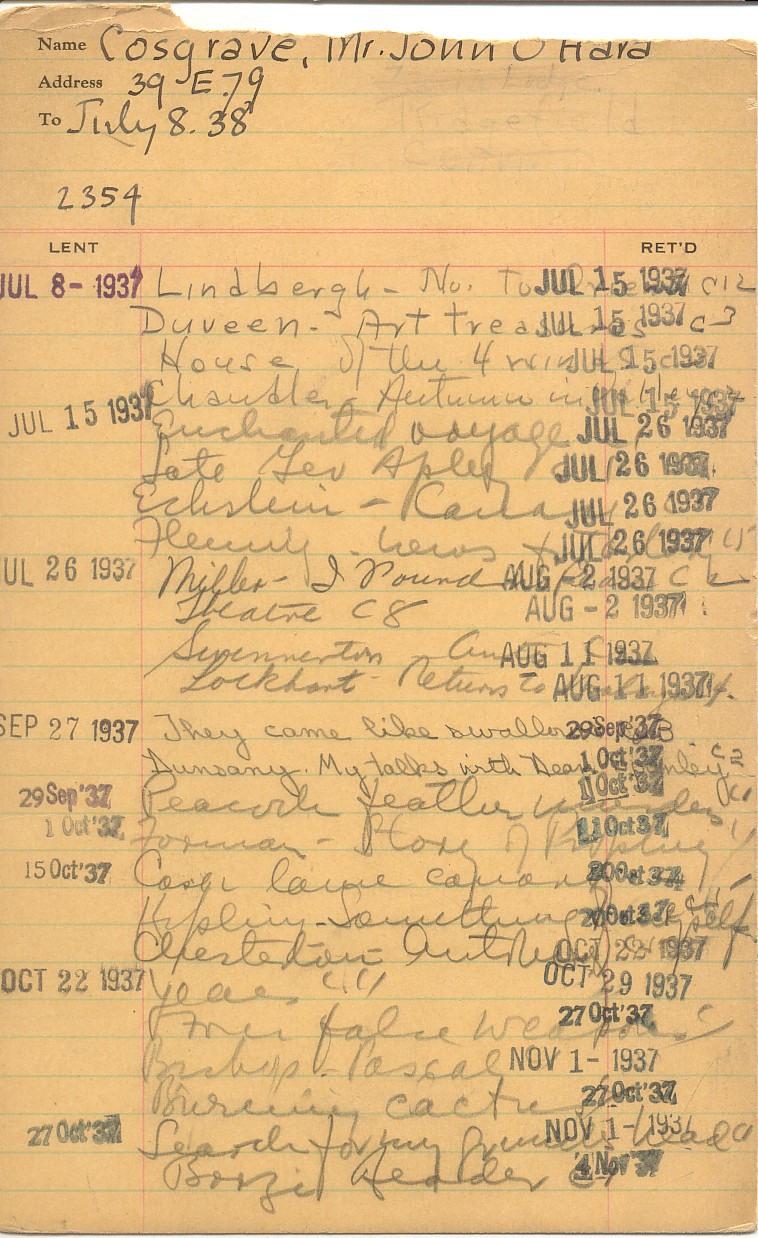 Name Cosgrave, Mr. John O'Hara
Address 39 E. 79
To July 8. 38
2354
LENT RET'D
JUL 8- 1937 Lindbergh - No. to JUL 15 1937 C12
Duveen - Art treasures JUL 15 1937 C3
House of the 4 winds JUL 15 1937
Chandler - Autumn in JUL 15 1937
JUL 15 1937 Enchanted voyage JUL 26 1937
Late Geo Apley JUL 26 1937
Eckstein - Canary JUL 26 1937
Fleming - news JUL 26 1937
JUL 26 1937 Miller - I Found AUG -2 1937 C2
Theatre C8 AUG -2 1937
Swinnerton - AUG 11 1937
Lockhart - Return to AUG 11 1937
SEP 27 1937 They came like swallows 29 Sep '37
Dunsany. My talks with Dean Spanley 1 Oct '37 C2
29 Sep '37 Peacock feather murders 11 Oct 37
1 Oct '37 Forman - Story of 11 Oct 37
15 Oct '37 Casa 20 Oct 37
Kipling - Something of Myself 20 Oct 37
Chesterton OCT 22 1937
OCT 22 1937 Years OCT 29 1937
Four false weapons 27 Oct '37
Bishop - Pascal NOV 1- 1937
Burning cactus 27 Oct '37
27 Oct '37 Search for my NOV 1- 1937
Borzoi Reader 4 Nov '37